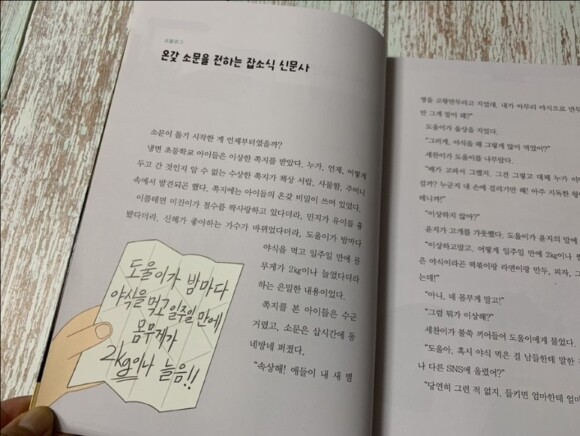 프롤로그
온갖 소문을 전하는 잡소식 신문사
소문이 돌기 시작한 게 언제부터였을까?
냉면 초등학교 아이들은 이상한 쪽지를 받았다. 누가, 언제, 어떻게
두고 간 것인지 알 수 없는 수상한 쪽지가 책상 서랍, 사물함, 주머니
속에서 발견되곤 했다. 쪽지에는 아이들의 온갖 비밀이 쓰여 있었다.
이를테면 미진이가 철수를 짝사랑하고 있다더라, 민지가 유이를 흉
봤다더라, 신해가 좋아하는 가수가 바뀌었다더라, 도율이가 밤마다
야식을 먹고 일주일 만에 몸
무게가 2kg이나 늘었다더라
하는 은밀한 내용이었다.
쪽지를 본 아이들은 수군
거렸고, 소문은 삽시간에 동
네방네 퍼졌다.
"속상해! 애들이 내 새 별
도율이가 밤마다
야식을 먹고 일주일 만에
몸무게가
2kg이나 늘음!!
명을 고향만두라고 지었대. 내가 아무리 야식으로 만두
만 그게 말이 돼?"
도율이가 울상을 지었다.
"그러게, 야식을 왜 그렇게 많이 먹었어?"
세찬이가 도율이를 나무랐다.
"배가 고파서 그랬지. 그건 그렇고 대체 누가 이
걸까? 누군지 내 손에 걸리기만 해! 아주 지독한
테니까!"
"이상하지 않아?"
윤지가 고개를 갸웃했다. 도율이가 윤지의 말에
"이상하고말고. 어떻게 일주일 만에 2kg이나
은 야식이라곤 떡볶이랑 라면이랑 만두, 피자,
는데!"
"아니, 네 몸무게 말고!"
"그럼 뭐가 이상해?"
세찬이가 불쑥 끼어들어 도율이에게 물었다.
"도율아, 혹시 야식 먹은 걸 남들한테 말한
나 다른 SNS에 올렸어?"
"당연히 그런 적 없지. 들키면 엄마한테 얼마